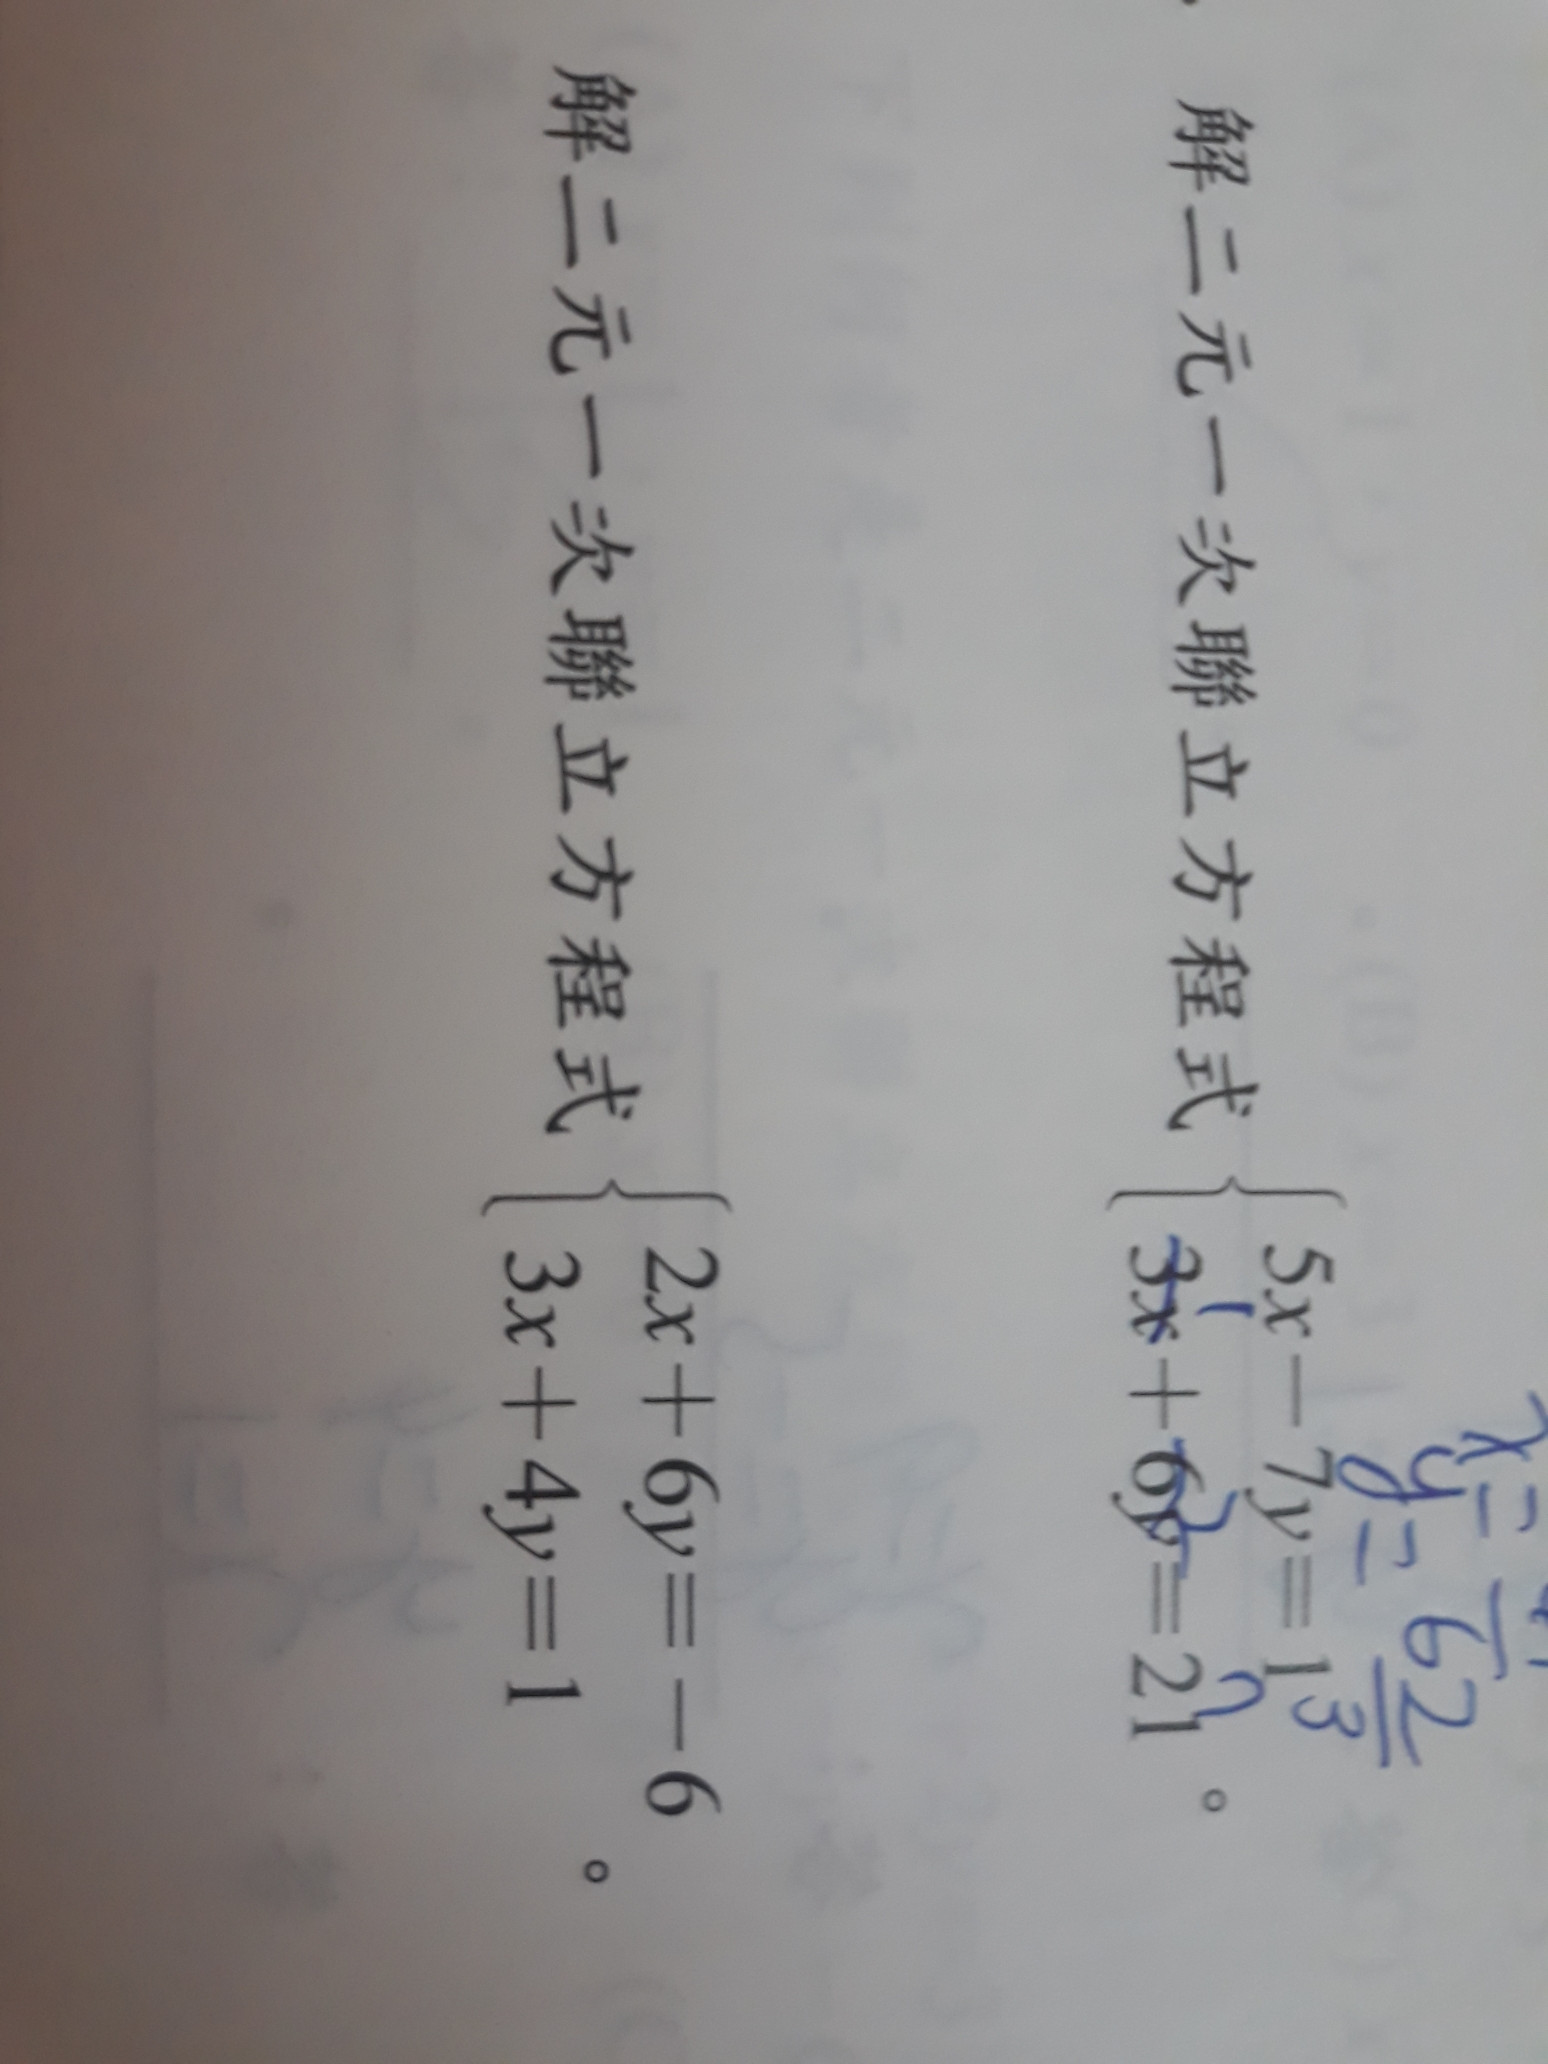 解二元一次聯立方程式 { 5x－7y＝1
3x＋6y＝21 。
解二元一次聯立方程式 { 2x＋6y＝－6
3x＋4y＝1 。